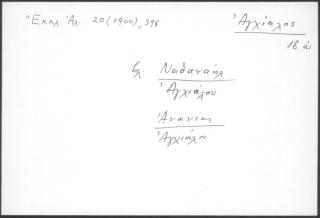 Ἐκκλ. Ἀλ. 20 (1900), 398
Ἀγχίαλος
18 αἰ
βλ. Ναθαναήλ
Ἀγχιάλου
Ἀνανίας
Ἀγχιάλου